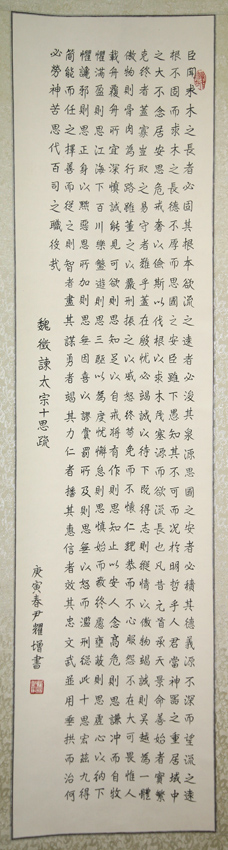 臣聞求木之長者必固其根本欲流之遠者必浚其泉源思國之安者必積其德義源不深而望流之遠
根不固而求木之長德不厚而思國之安臣雖下愚知其不可而況於明哲乎人君當神器之重居域中
之大不念居安思危戒奢以儉斯以伐根以求木茂塞源而欲流長也凡昔元首承天景命善始者實繁
克終者蓋寡豈取之易守者難乎蓋在殷憂必竭誠以待下既得志則縱情以傲物竭誠則吳越為一體
傲物則骨肉為行路雖董之以嚴刑振之以威怒終苟免而不懷仁貌恭而不心服怨不在大可畏惟人
載舟覆舟所宜深慎誠能見可欲則思知足以自戒將有作則思知止以安人念高危則思謙沖而自牧
懼滿盈則思江海下百川樂盤遊則思三驅以為度憂懈怠則思慎始而敬終慮壅蔽則思虛心以納下
懼讒邪則思正身以黜惡恩所加則思無因喜以謬賞罰所及則思無以怒而濫刑總此十思宏茲九得
簡能而任之擇善而從之則智者盡其謀勇者竭其力仁者播其惠信者效其忠文武並用垂拱而治何
必勞神苦思代百司之職役哉
魏徵諫太宗十思疏
庚寅春尹耀書